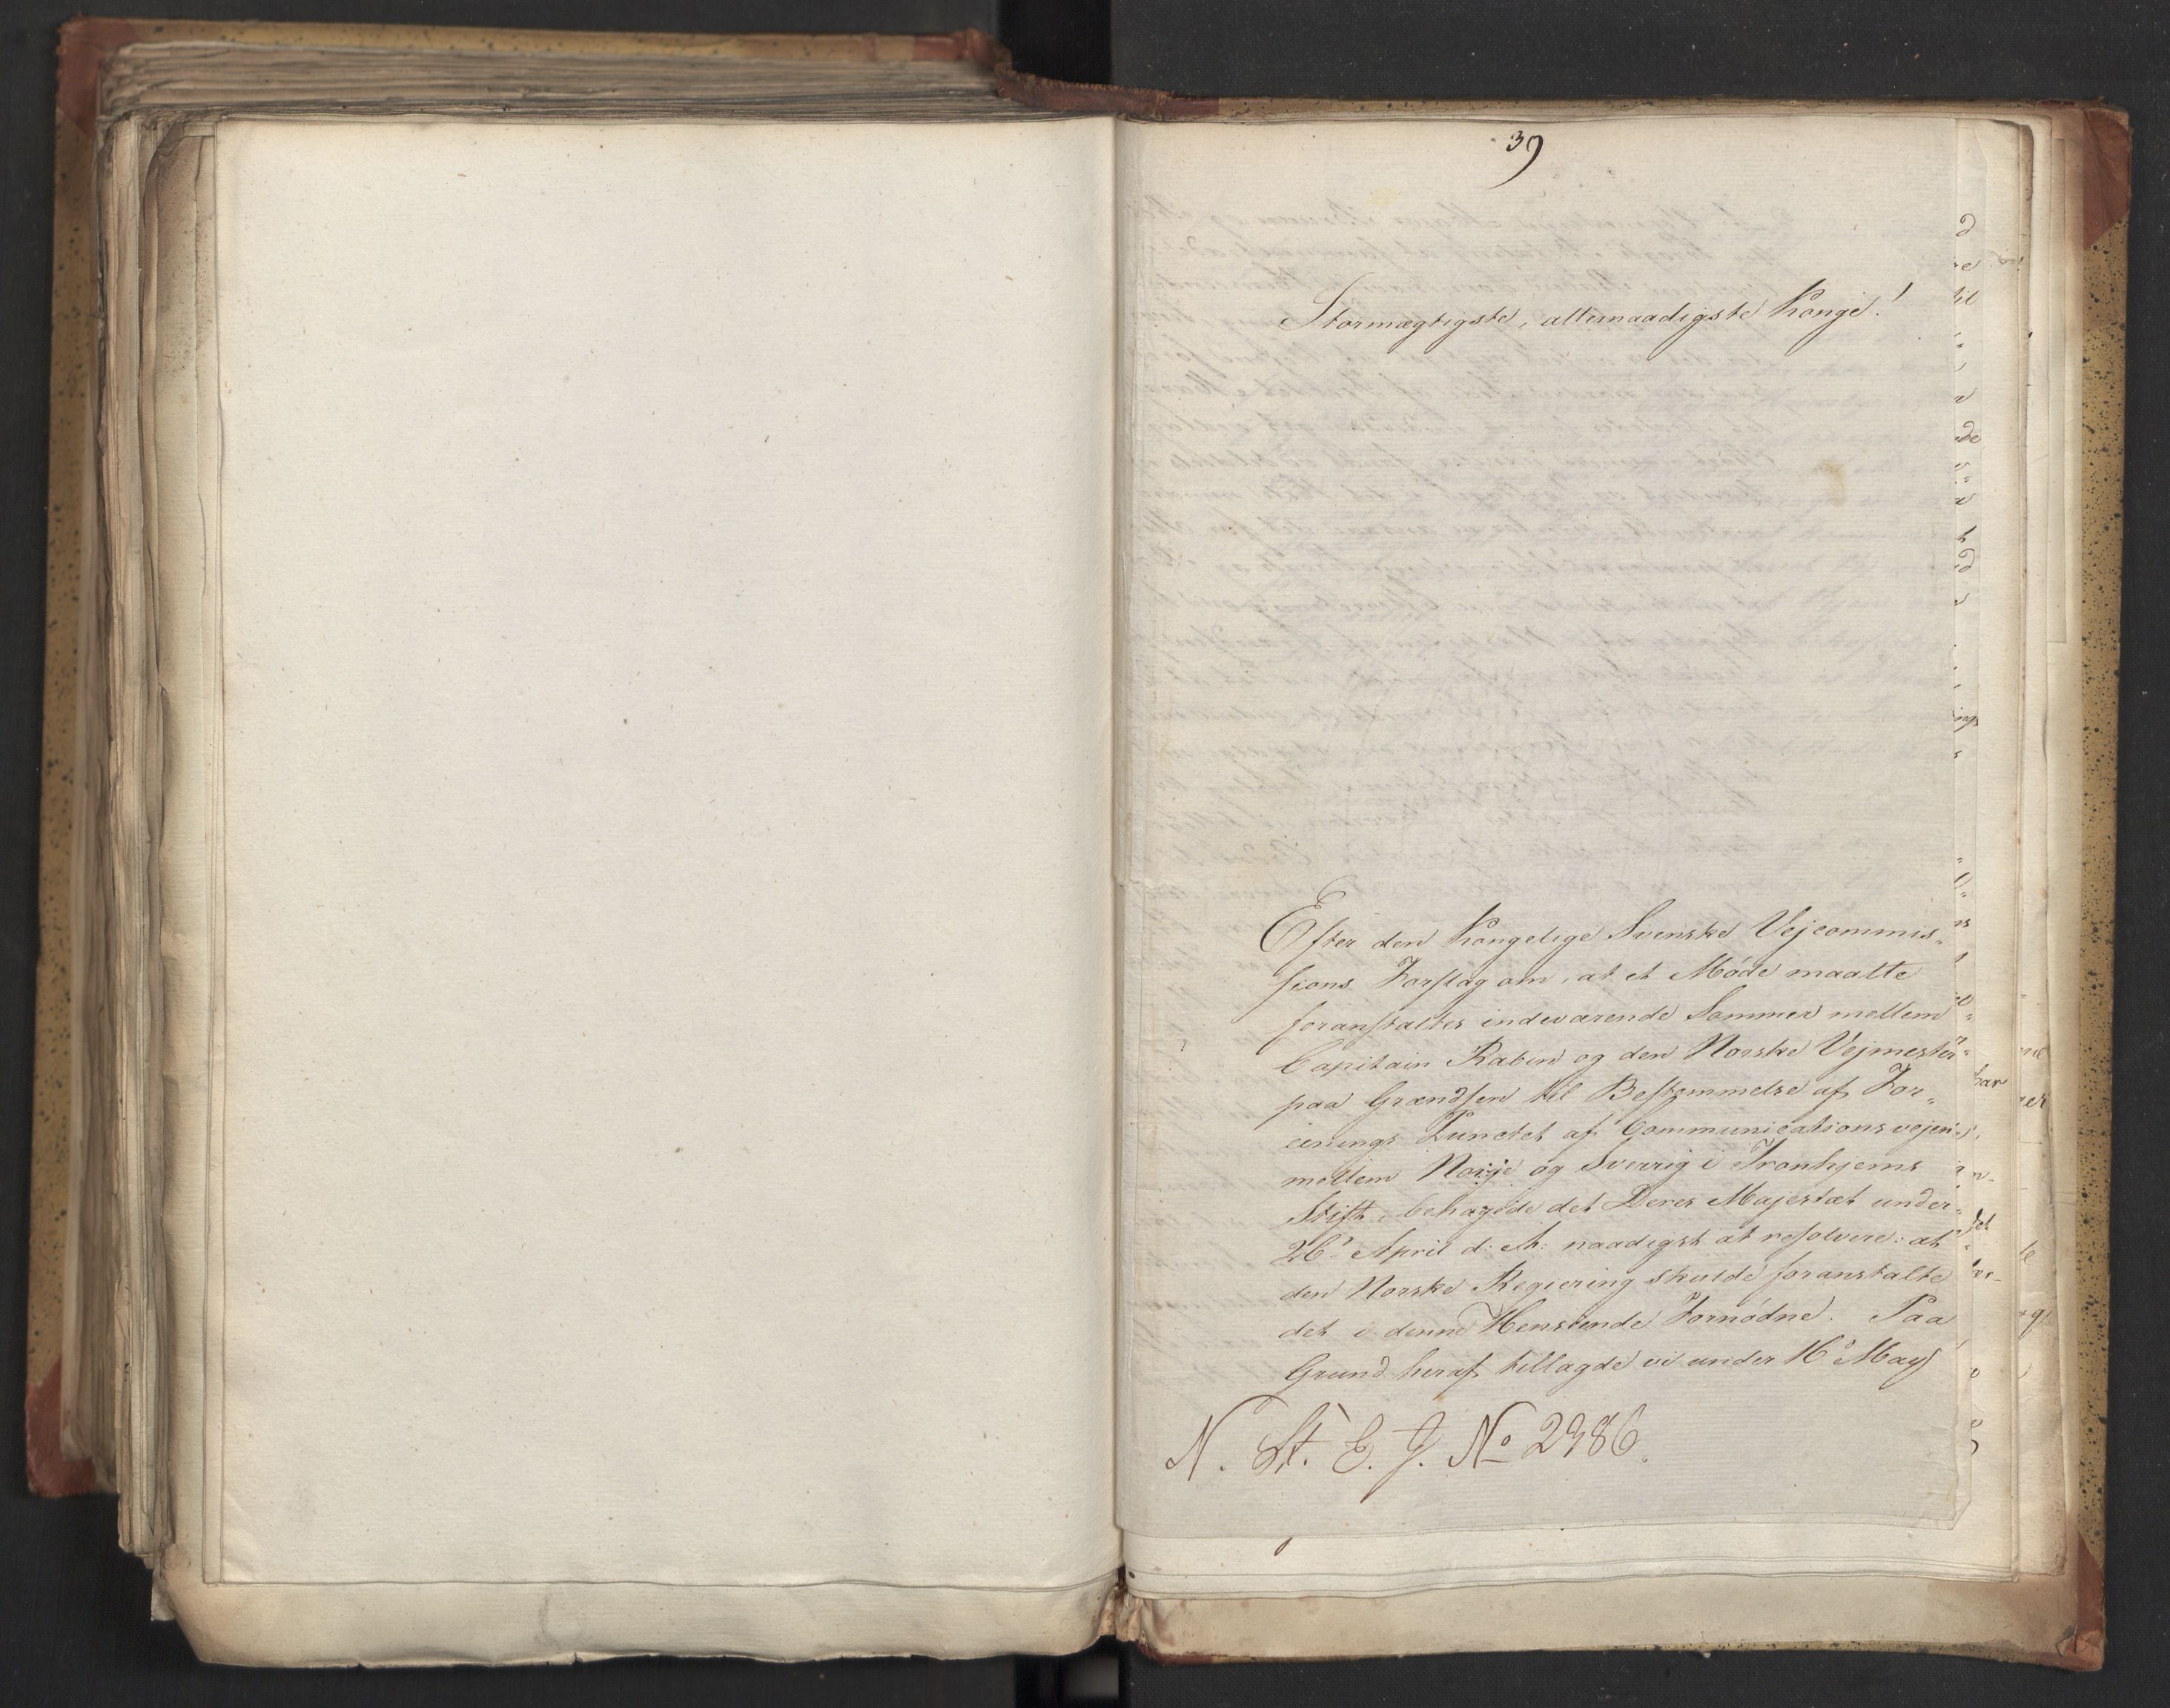 39
Stormægtigste, allernaadigste Konge!
Efter den Kongelige Svenske Vejcommis„
sions Forslag om, at et Møde maatte
foranstaltes indeværende Sommer mellem
Capitain Raben og den Norske Vejmester
paa Grændsen til Bestemmelse af For„
enings Punctet af Communicationsvejen
mellem Norge og Sverrig i Tronhjems
Stift, behagede det Deres Majestæt under
26de April d: A: naadigst at resolvere: at
den Norske Regiering skulde foranstalte
det i denne Henseende Fornødne. Paa
Grund heraf tillagde vi under 16de May
N. St. E. J. No 2986.